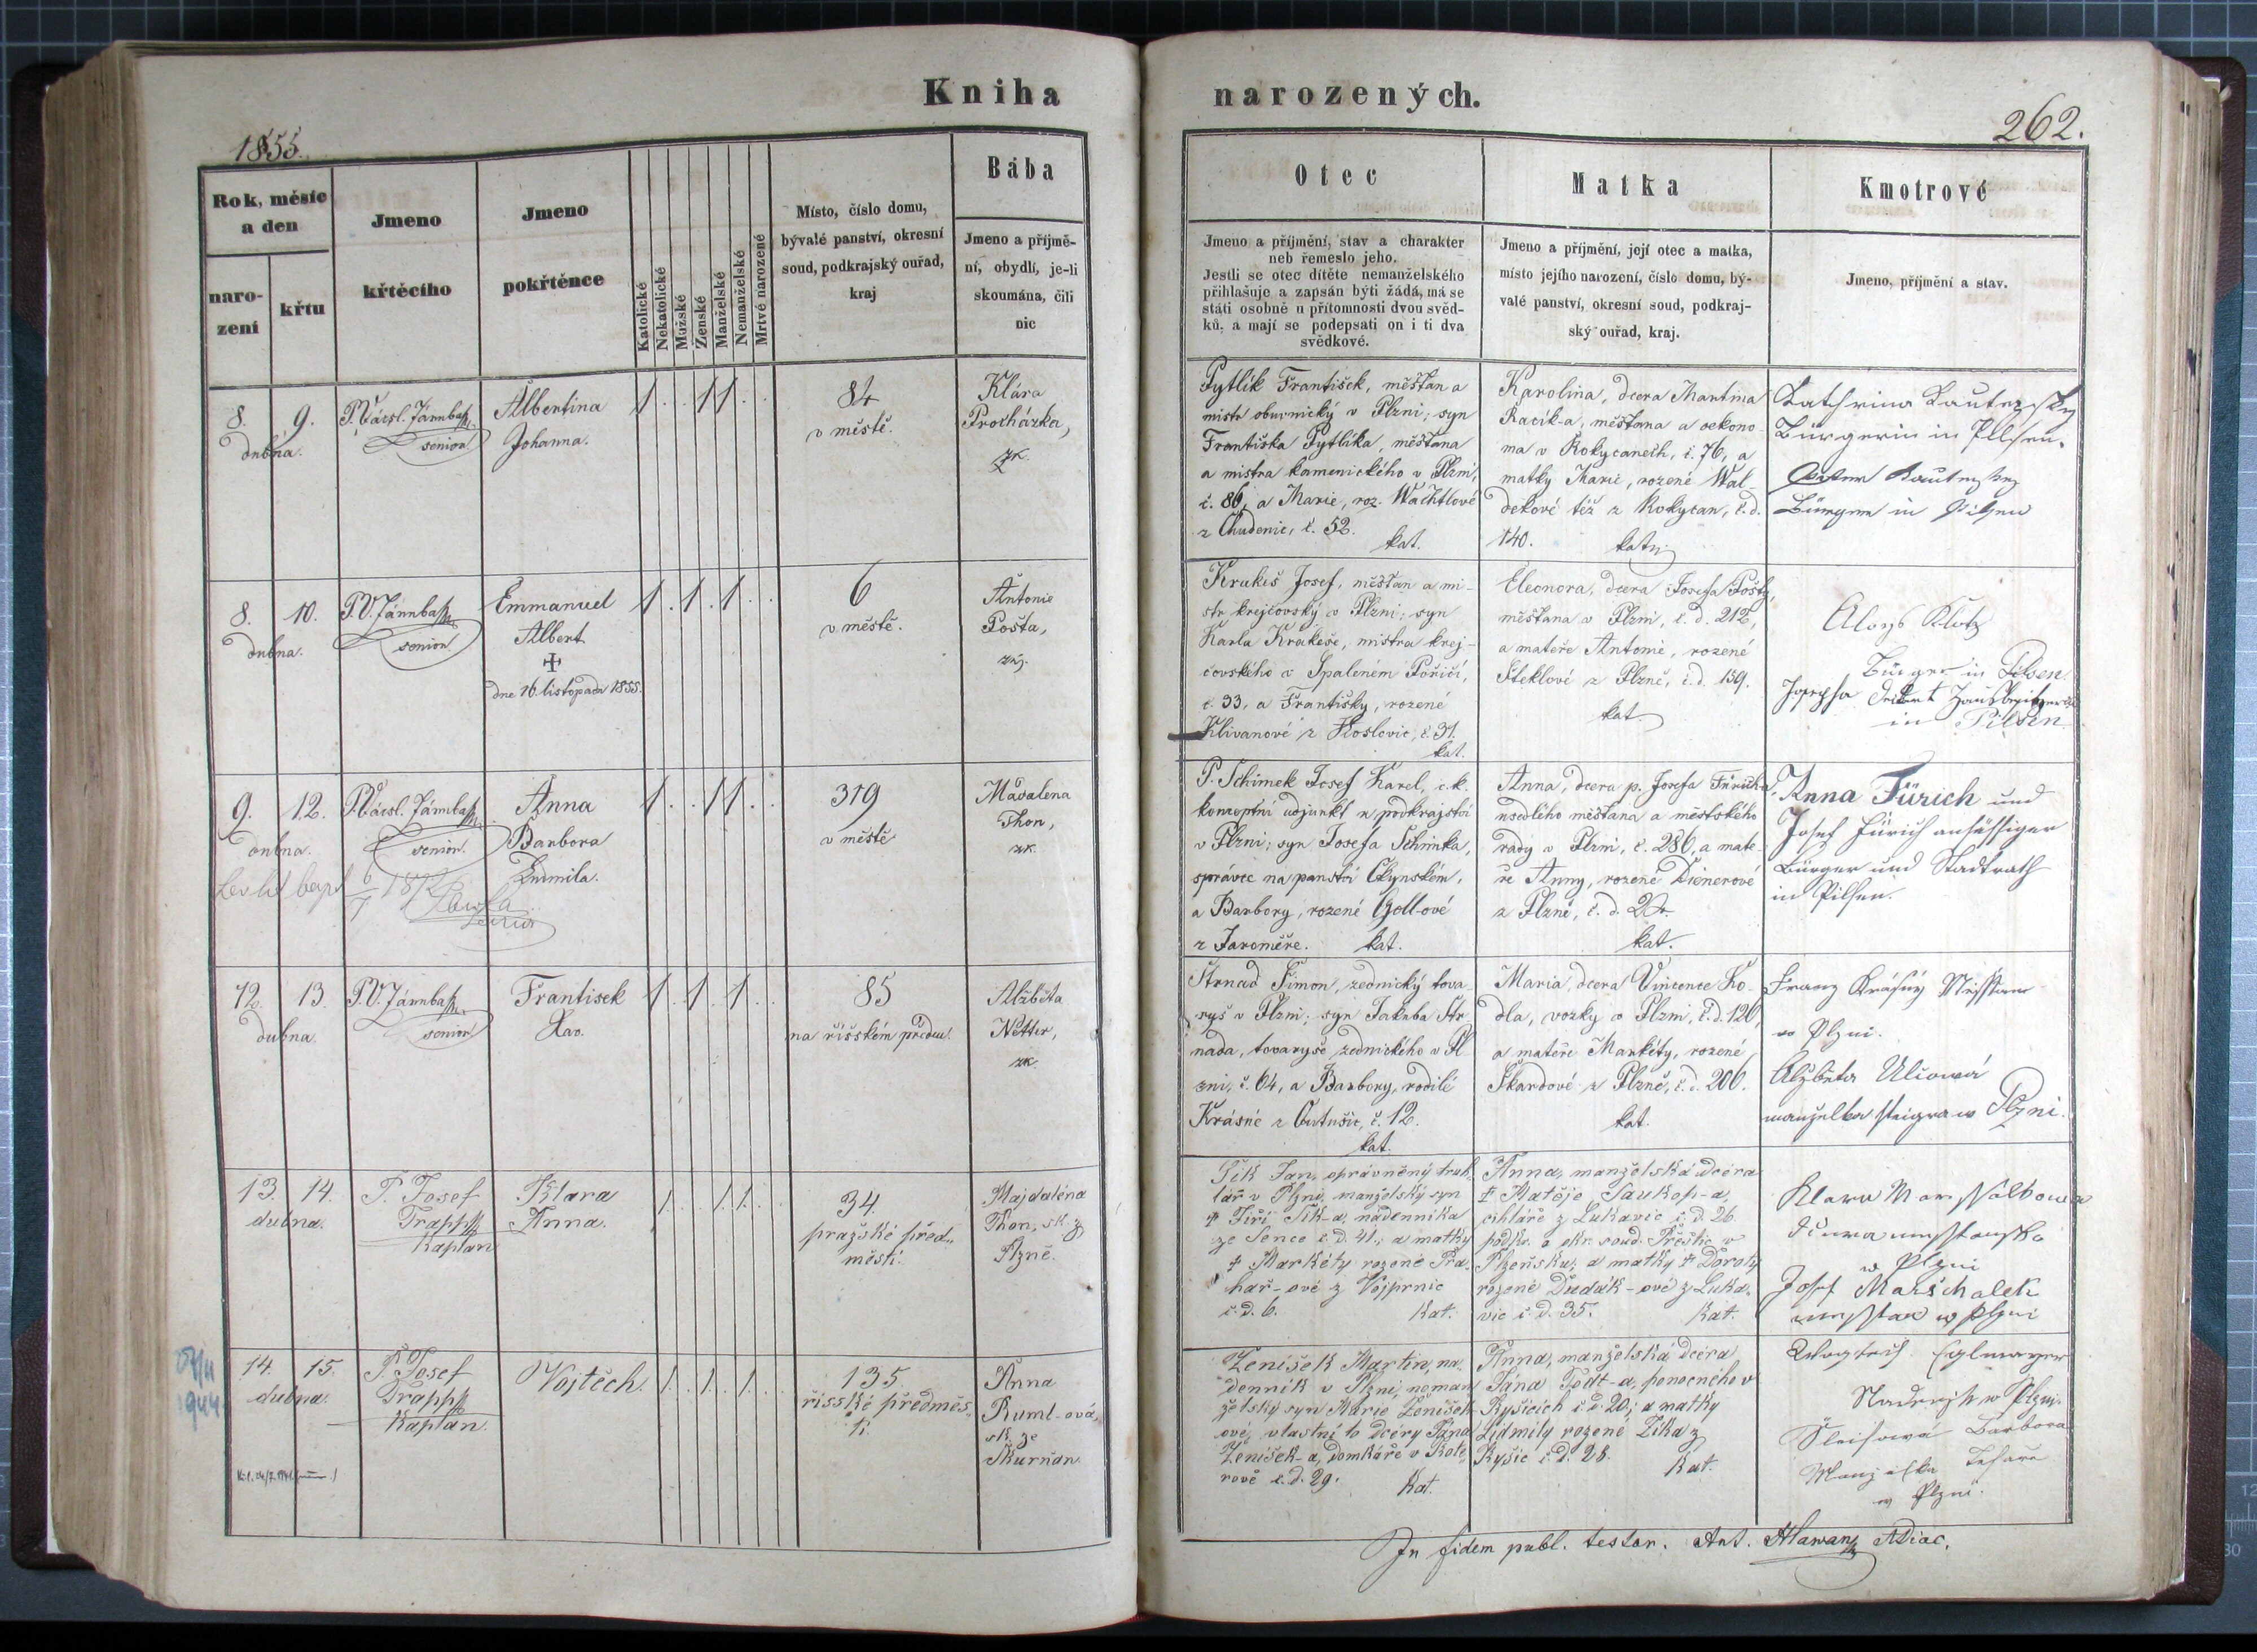 Kniha
1855.
Rok, měsíc
a den
naro-
zení
křtu
Jmeno
křtěcího
Jmeno
pokřtěnce
Katolické
Nekatolické
Mužské
Ženské
Manželské
Nemanželské
Mrtvé narozené
Místo, číslo domu,
bývalé panství, okresní
soud, podkrajský ouřad,
kraj
Bába
Jmeno a příjmě-
ní, obydlí, je-li
skoumána, čili
nic
8. 9.
dubna.
senior.
Albertina
Johanna.
1 . . 1 1 . .
84
v městě.
Klára
Procházka,
zk.
8. 10.
dubna.
senior.
Emmanuel
Albert
dne 16. listopadu 1855.
1 . 1 . 1 . .
6
v městě.
Antonie
Pošta,
zk.
9. 12.
dubna.
senior.
Anna
Barbora
Ludmila.
1 . . 1 1 . .
319
v městě
Madalena
Thon,
zk.
12. 13.
dubna.
senior
Frantisek
Xav.
1 . 1 . 1 . .
85
na říšském předm.
Alžběta
Netter,
zk.
13. 14.
dubna.
P. Josef
Trapp
Kaplan
Klara
Anna.
1 . . 1 1 . .
34.
pražské před-
městí.
Majdaléna
Thon, sk. z
Plzně.
14. 15.
dubna.
P. Josef
Trapp
Kaplan.
Vojtěch.
1 . 1 . 1 . .
135
říšské předměs-
tí.
Anna
Ruml-ová,
sk. ze
Skurňan.
narozených.
262.
Otec
Jmeno a příjmění, stav a charakter
neb řemeslo jeho.
Jestli se otec dítěte nemanželského
přihlašuje a zapsán býti žádá, má se
státi osobně u přítomnosti dvou svěd-
ků, a mají se podepsati on i ti dva
svědkové.
Matka
Jmeno a příjmění, její otec a matka,
místo jejího narození, číslo domu, bý-
valé panství, okresní soud, podkraj-
ský ouřad, kraj.
Kmotrové
Jmeno, příjmění a stav.
Pytlík František, měšťan a
mistr obuvnický v Plzni; syn
Františka Pytlíka, měšťana
a mistra kamenického v Plzni,
č. 86, a Marie, roz. Wachtlové
z Chudenic, č. 52.
kat.
Karolina, dcera Martina
Racík-a, měšťana a oekono-
ma v Rokycanech, č. 76, a
matky Marie, rozené Wal-
dekové též z Rokycan, č. d.
140.
Bürgerin in Pilsen.
Bürger in Pilsen
Krakeš Josef, měšťan a mi-
str krejčovský v Plzni; syn
Karla Krakeše, mistra krej-
čovského v Spaleném Poříčí,
č. 33, a Františky, rozené
Klivanové z Hoslovic, č. 31.
kat.
Eleonora, dcera Josefa Pošty,
měšťana v Plzni, č. d. 212,
a mateře Antonie, rozené
Šteklové z Plzně, č. d. 159.
kat.
Aloys Klotz
Bürger in Pilsen
Josepha
in Pilsen
P. Schimek Josef Karel, c. k.
konceptní adjunkt u podkrajství
v Plzni; syn Josefa Schimka,
správce na panství
a Barbory, rozené Goll-ové
z Jaroměře. kat.
Anna, dcera p. Josefa Füricha,
usedlého měšťana a městského
rady v Plzni, č. 286, a mate-
ře Anny, rozené Dienerové
z Plzně, č. d.
kat.
Anna Fürich und
Josef Fürich ansässiger
Bürger und Stadtrath
in Pilsen.
Strnad Šimon, zednický tova-
ryš v Plzni; syn Jakuba Str-
nada, tovaryše zednického v Pl-
zni, č. 64, a Barbory, rodilé
Krásné z č. 12.
kat.
Maria, dcera Vincence Ko-
dla, vozky v Plzni, č. d. 126,
a mateře Markéty, rozené
Škardové z Plzně, č. d. 206.
kat.
Franz Krásný
w Plzni.
Alžběta Ulčowá
manželka w Plzni.
Šik Jan, oprávněný truh-
lář v Plzni, manželský syn
† Jiří Šik-a, nádenníka
ze Sence č. d. 41.; a matky
† Markéty rozené Pra-
hař-ové z Vojprnic
č. d. 6. Kat.
Anna, manželská dcéra
† Matěje Saukop-a,
cihláře z Lukavic č. d. 26.
podkr. a okr. soud. Přeštic v
Plzeňsku; a matky † Doroty
rozené Dudák-ové z Luka-
vic č. d. 35. Kat.
Klara
w Plzni
Josef Marschalek
w Plzni
Ženíšek Martin, ná-
denník v Plzni, neman-
želský syn Marie Ženíšek-
ové, vlastní to dcéry Jána
Ženíšek-a, domkáře v Kote-
rově č. d. 29. Kat.
Anna, manželská dcéra
Jána Födt-a, v
Kyšicích č. d. 20; a matky
Lidmily rozené Lika z
Kyšic č. d. 28. Kat.
w Plzni.
Barbora
w Plzni.
In fidem publ. testor. Ant. Hlawan